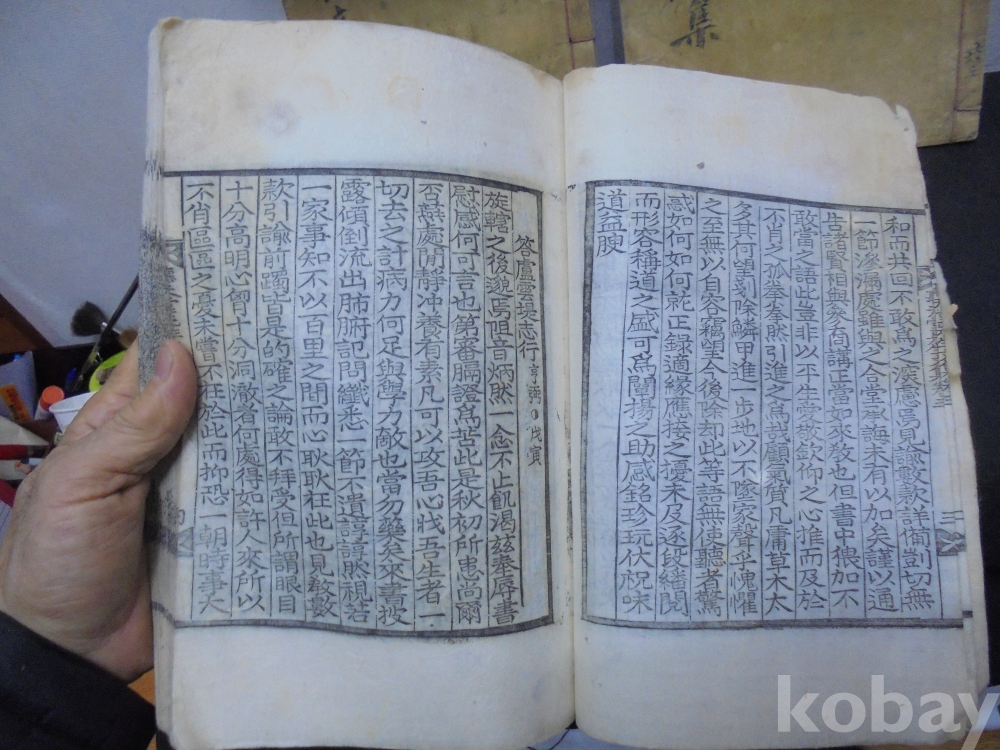 和而共回不敢爲之深慮焉見諭數款詳簡剴切無
一節滲漏處雖與之合堂承誨未有以加矣謹以通
告諸賢相與參間講正當如來敎也但書中猥加不
敢當之語此豈非以平生愛欽仰之心推而及於
不肖之孤拳拳然引進之爲哉顧氣質凡庸草木太
多其何望剗除鱗甲進一步地以不墜家聲乎愧懼
之至無以自容穪望今後除却此等語無使聽者驚
惑如何如何就正録適緣應接之擾未及逐段結閱
而形容稱道之盛可爲闡揚之助感銘珍玩伏祝味
道益腴
答盧雲堤志行 亨弼 戊寅
旌轄之後邈焉阻音炳然一念不止飢渴玆奉辱書
慰感何可言也第審膈證爲苦此是秋初所患尚爾
否 處閒靜冲養有素凡可以攻吾心戕吾生者一
切去之計病力何足與學力敵也當勿藥矣來書披
露傾倒流出肺腑記問纖悉一節不遺諄諄然視若
一家事知不以百里之間而心耿耿在此也見敎數
款引諭前躅皆是的確之論敢不拜受但所謂眼目
十分高明心胷十分洞澈者何處得如許人來所以
不肖區區之憂未嘗不在於此而抑恐一朝時事大
集
kobay